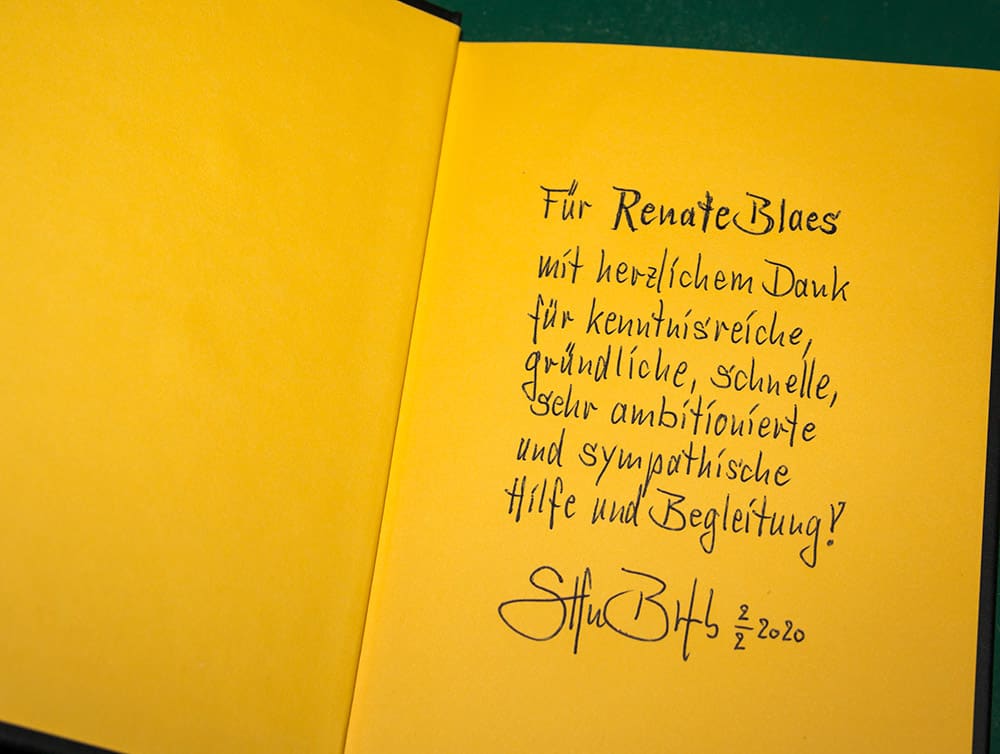 Für Renate Blaes
mit herzlichem Dank
für kenntnisreiche,
gründliche, schnelle,
sehr ambitionierte
und sympathische
Hilfe und Begleitung!
2/2 2020